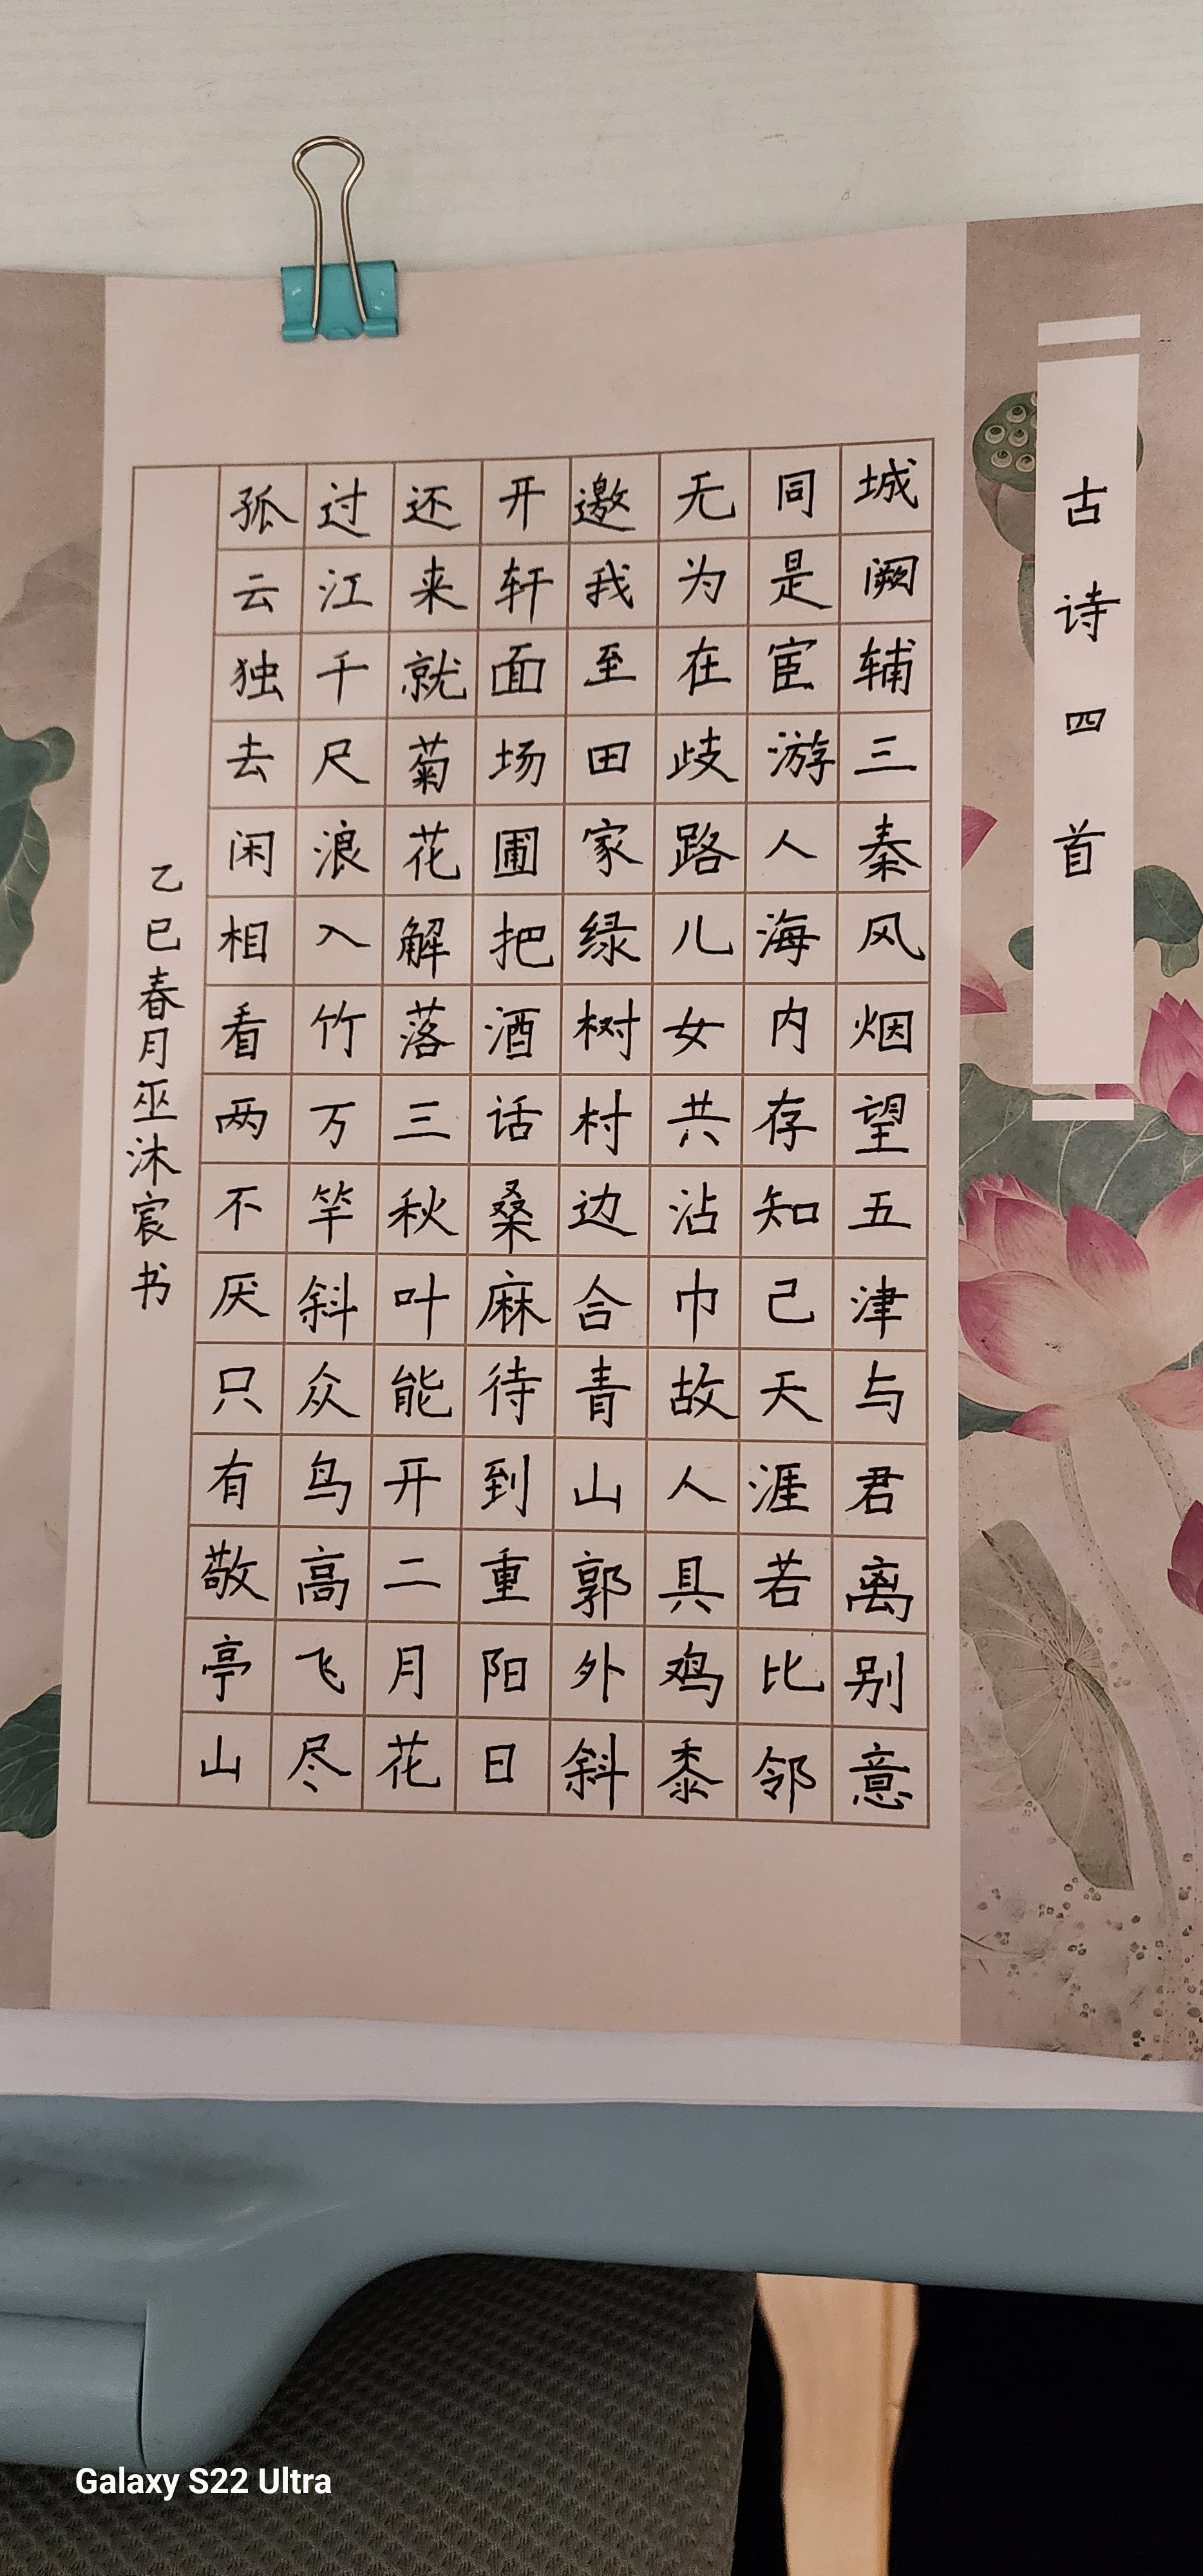 古诗四首
城阙辅三秦风烟望五津与君离别意
同是宦游人海内存知己天涯若比邻
无为在歧路儿女共沾巾故人具鸡黍
邀我至田家绿树村边合青山郭外斜
开轩面场圃把酒话桑麻待到重阳日
还来就菊花解落三秋叶能开二月花
过江千尺浪入竹万竿斜众鸟高飞尽
孤云独去闲相看两不厌只有敬亭山
乙巳春月巫沐宸书
Galaxy S22 Ultra